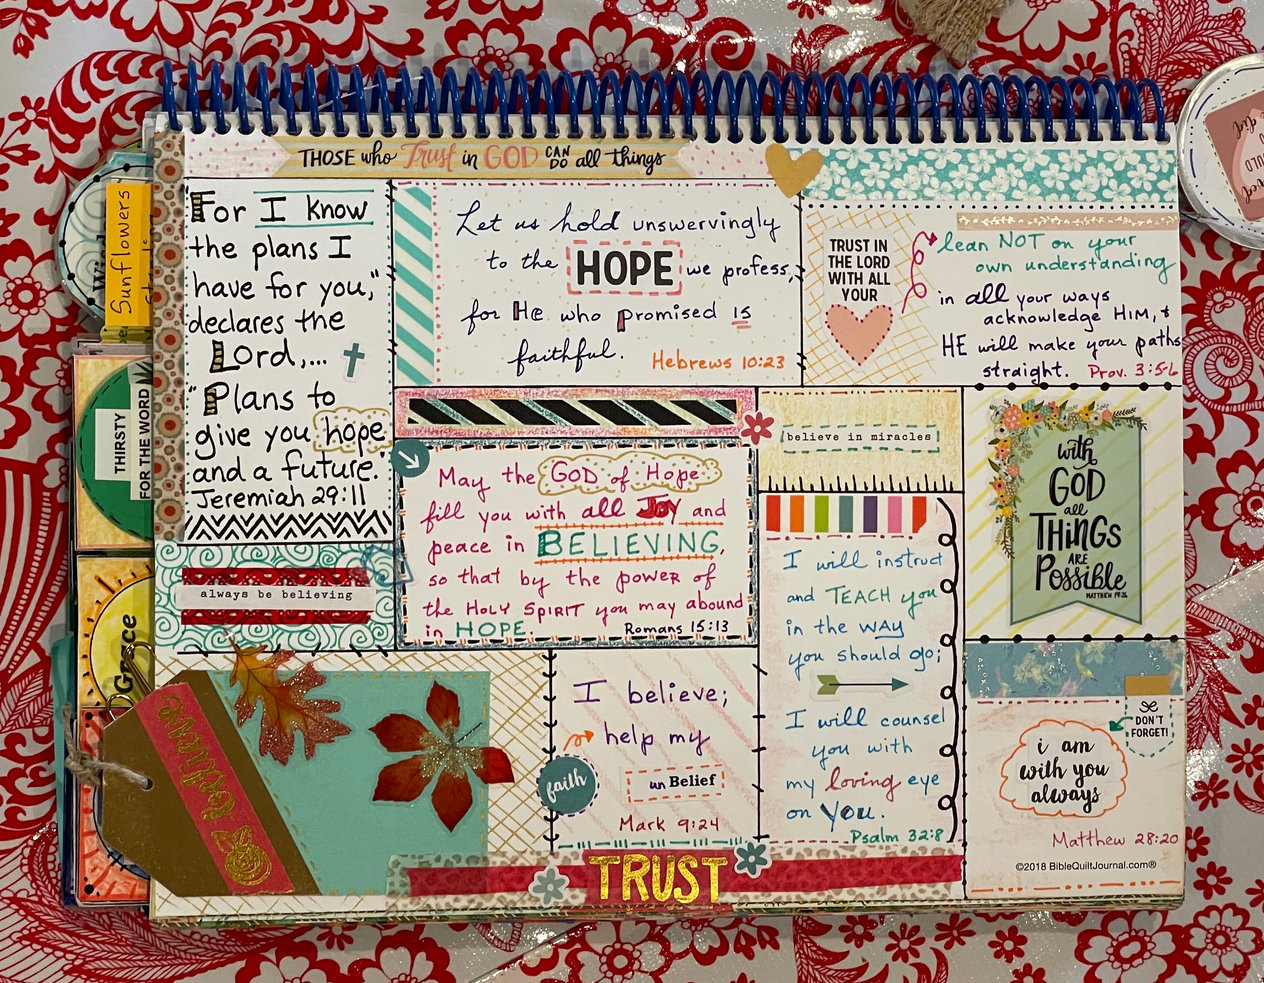 THOSE who Trust in GOD CAN DO all things
For I know
the plans I
have for you,"
declares the
Lord,...
"Plans to
give you hope
and a future."
Jeremiah 29:11
Let us hold unswervingly
to the HOPE we profess,
for He who promised is
faithful.
Hebrews 10:23
TRUST IN
THE LORD
WITH ALL
YOUR
lean NOT on your
own understanding
in all your ways
acknowledge HIM, +
HE will make your paths
straight. Prov. 3:5-6
May the GOD of Hope
fill you with all Joy and
peace in BELIEVING,
so that by the power of
the HOLY SPIRIT you may abound
in HOPE.
Romans 15:13
believe in miracles
with
GOD
all
THINGS
ARE
Possible
MATTHEW 19:26
always be believing
I will instruct
and TEACH you
in the WAY
you should go;
I will counsel
you with
my loving eye
on You.
Psalm 32:8
I believe;
help my
unBelief
Mark 9:24
faith
DON'T
FORGET!
i am
with you
always
Matthew 28:20
©2018 BibleQuiltJournal.com®
believe
TRUST
Sunflowers
THIRSTY
FOR THE WORD
Grace